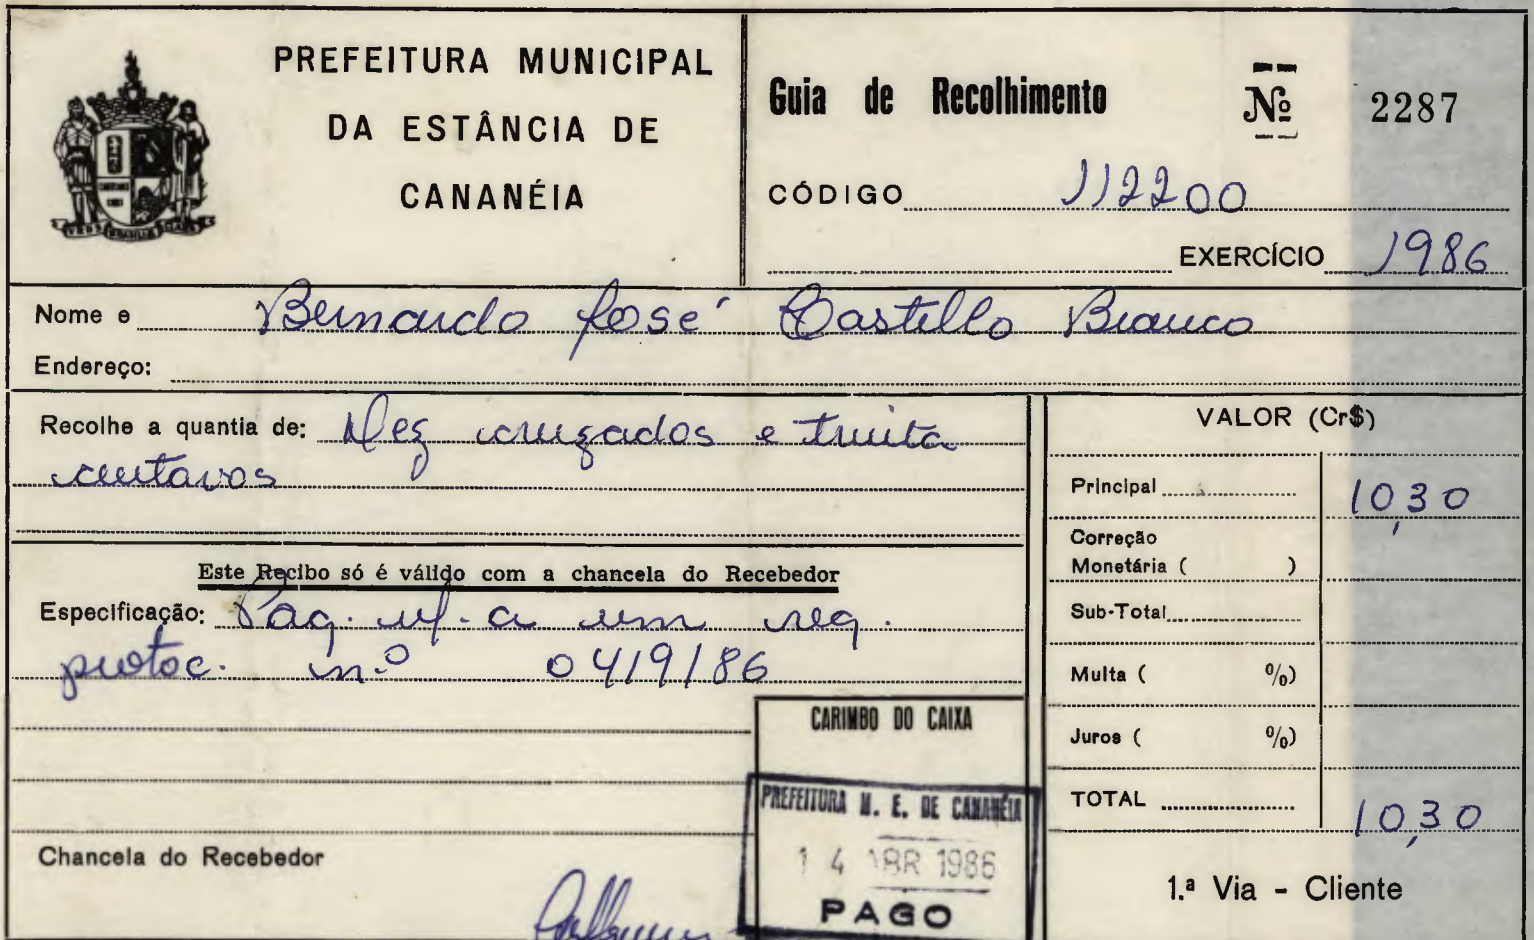 PREFEITURA MUNICIPAL
DA ESTÂNCIA DE
CANANÉIA
Guia de Recolhimento Nº 2287
CÓDIGO 112200
EXERCÍCIO 1986
Nome e Bernardo José Castello Branco
Endereço:
Recolhe a quantia de: Dez cruzados e trinta
centavos
Este Recibo só é válido com a chancela do Recebedor
Especificação: Pag. ref. a um req.
protoc. n.º 0419/86
Chancela do Recebedor
CARIMBO DO CAIXA
PREFEITURA M. E. DE CANANÉIA
14 ABR 1986
PAGO
VALOR (Cr$)
Principal 10,30
Correção
Monetária ( )
Sub-Total
Multa ( %)
Juros ( %)
TOTAL 10,30
1.ª Via - Cliente